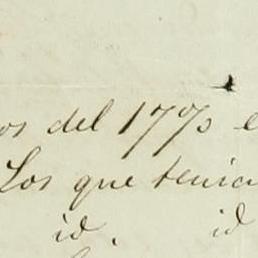 os del 1773 e
Los que tenia
id. id